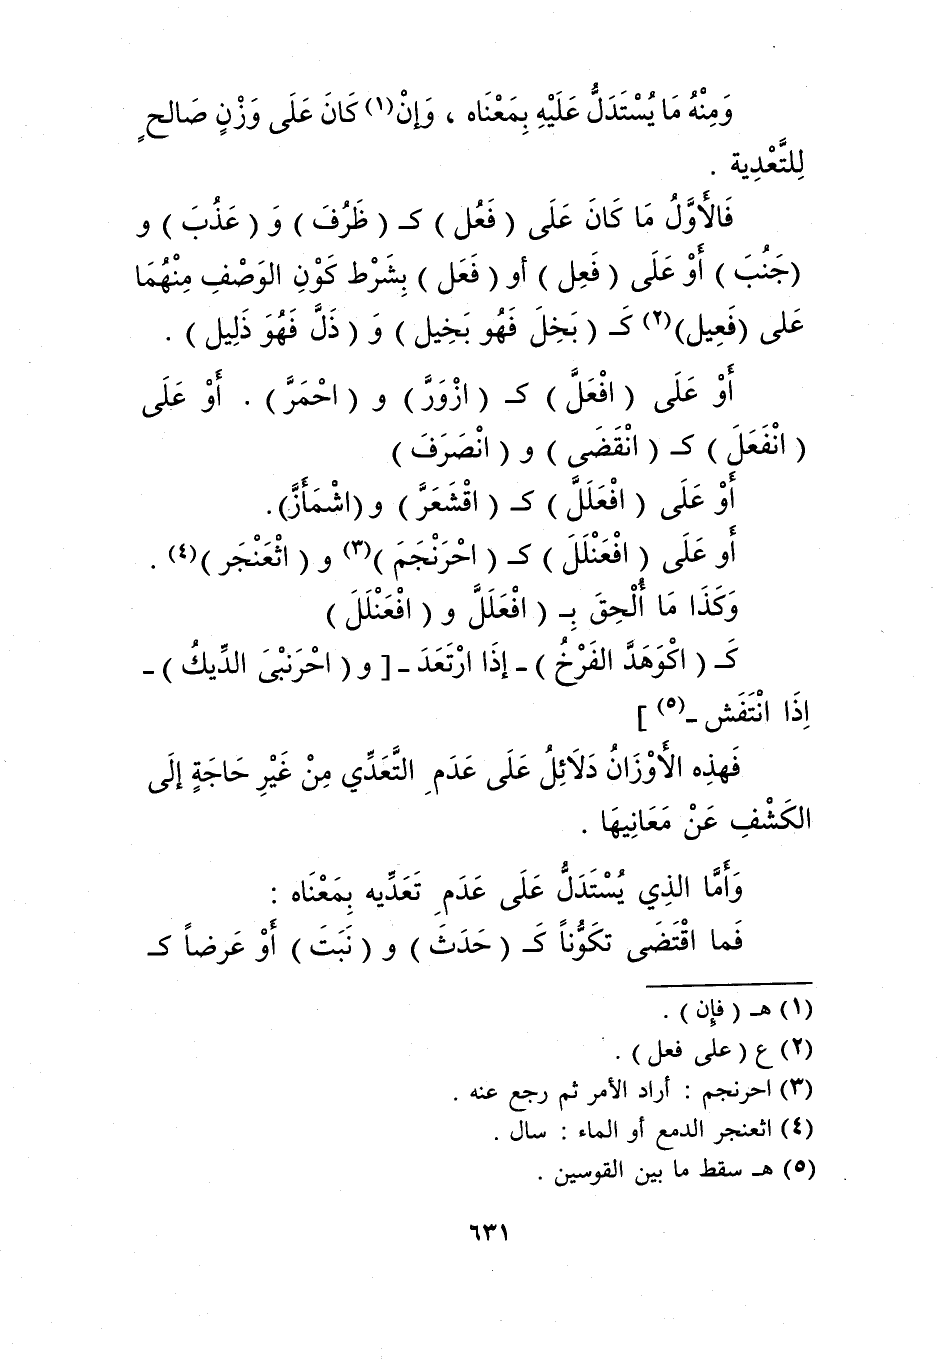 وَمِنْهُ مَا يُسْتَدَلُّ عَلَيْهِ بِمَعْنَاه ، وَإِنْ(١) كَانَ عَلَى وَزْنٍ صَالحٍ
لِلتَّعْدِية .
فَالأَوَّلُ مَا كَانَ عَلَى ( فَعُل ) كـ ( ظَرُفَ ) وَ ( عَذُبَ ) و
(جَنُبَ ) أَوْ عَلَى ( فَعِل ) أو ( فَعَل ) بِشَرْط كَوْنِ الوَصْفِ مِنْهُمَا
عَلى (فَعِيل)(٢) كَـ ( بَخِلَ فَهُو بَخِيل ) وَ ( ذَلَّ فَهُوَ ذَلِيل ) .
أَوْ عَلَى ( افْعَلَّ ) كـ ( ازْوَرَّ ) و ( احْمَرَّ ) . أَوْ عَلَى
( انْفَعَلَ ) كـ ( انْقَضَى ) و ( انْصَرَفَ )
أَوْ عَلَى ( افْعَلَلَّ ) كـ ( اقْشَعَرَّ ) و (اشْمَأَزَّ).
أَو عَلَى ( افْعَنْلَلَ ) كـ ( احْرَنْجَمَ )(٣) و ( اثْعَنْجَر )(٤) .
وَكَذَا مَا أُلْحِقَ بِـ ( افْعَلَلَّ و ( افْعَنْلَلَ )
كَـ ( اكْوَهَدَّ الفَرْخُ ) ـ إِذَا ارْتَعَدَ ـ [ و ( احْرَنبْىَ الدِّيكُ ) ـ
إِذَا انْتَفَش ـ(٥) ]
فَهذِه الأَوْزَانُ دَلَائِلُ عَلَى عَدَمِ التَّعَدِّي مِنْ غَيْرِ حَاجَةٍ إلَى
الكَشْفِ عَنْ مَعَانِيهَا .
وَأَمَّا الذِي يُسْتَدَلُّ عَلَى عَدَمِ تَعَدِّيه بِمَعْنَاه :
فَما اقْتَضَى تكَوُّناً كَـ ( حَدَثَ ) و ( نَبَتَ ) أَوْ عَرضاً كـ
(١) هـ ( فإِن ) .
(٢) ع ( على فعل ) .
(٣) احرنجم : أراد الأمر ثم رجع عنه .
(٤) اثعنجر الدمع أو الماء : سال .
(٥) هـ سقط ما بين القوسين .
٦٣١